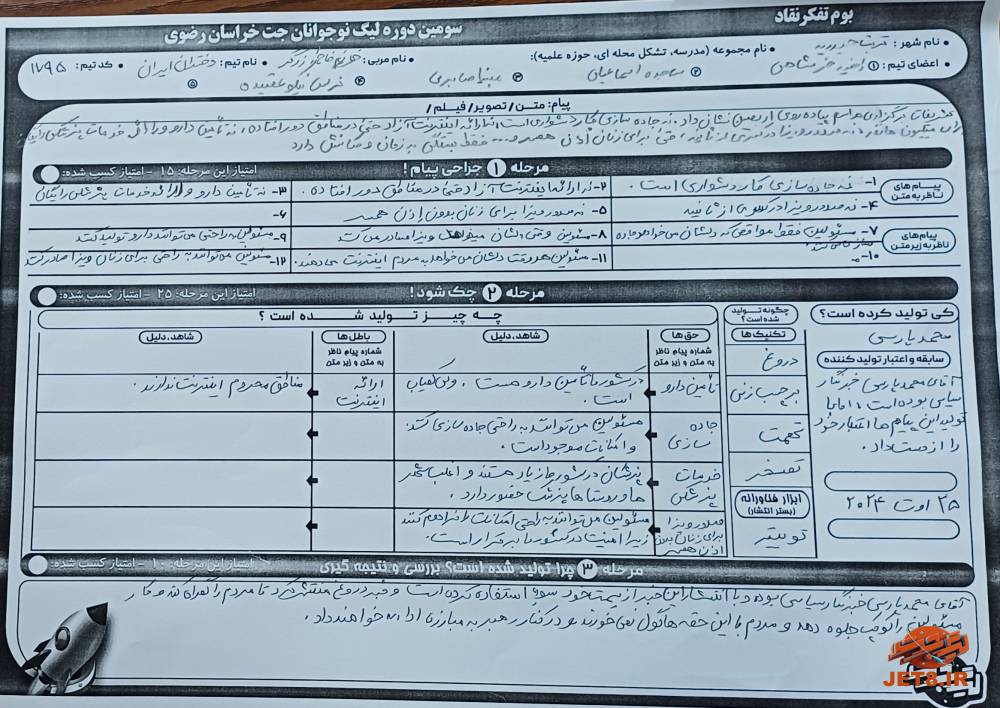 بوم تفکر نقاد
سومین دوره لیگ نوجوانان جت خراسان رضوی
نام شهر: تربت حیدریه
نام مجموعه (مدرسه، تشکل محله ای، حوزه علمیه):
نام مربی: خانم فاطمه زرگر
نام تیم: دختران ایران
کد تیم: ۱۷۹۵
اعضای تیم: ۱ ۲ ساجده اسماعیلی ۳ صابری ۴ نرگس نیکو عقیده ۵
پیام: متن / تصویر / فیلم /
برگزاری مراسم پیاده روی اربعین نشان داد، نه جاده سازی کار دشواری است، نه ارائه اینترنت آزاد حتی در مناطق دور افتاده، نه تأمین دارو و ارائه خدمات پزشکی رایگان
برای میلیون ها نفر، نه صدور ویزا در کسری از ثانیه، حتی برای زنان بدون اذن همسر و... فقط بستگی به زمان و مکانش دارد
مرحله ۱ جراحی پیام!
امتیاز این مرحله: ۱۵ - امتیاز کسب شده:
پیام های ناظر به متن
۱- نه جاده سازی کار دشواری است.
۲- نه ارائه اینترنت آزاد حتی در مناطق دور افتاده.
۳- نه تأمین دارو و ارائه خدمات پزشکی رایگان
۴- نه صدور ویزا در کسری از ثانیه
۵- نه صدور ویزا برای زنان بدون اذن همسر
۶-
پیام های ناظر به زیر متن
۷- مسئولین فقط مواقعی که دلشان می خواهد جاده سازی می کنند
۸- مسئولین وقتی دلشان میخواهد ویزا صادر می کنند
۹- مسئولین به راحتی می توانند دارو تولید کنند
۱۰-
۱۱- مسئولین هر وقت دلشان می خواهد به مردم اینترنت می دهند.
۱۲- مسئولین می توانند به راحتی برای زنان ویزا صادر کنند
مرحله ۲ چک شود!
امتیاز این مرحله: ۲۵ - امتیاز کسب شده:
کی تولید کرده است؟
محمد پارسی
سابقه و اعتبار تولید کننده
آقای محمد پارسی خبرنگار
سیاسی بوده است، اما با
تولید این پیام ها اعتبار خود
را از دست داد.
۲۵ اوت ۲۰۲۴
چگونه تولید شده است؟
تکنیک ها
دروغ
برچسب زنی
تهمت
تمسخر
ابزار فناورانه (بستر انتشار)
توییتر
چه چیز تولید شده است؟
حق ها
شماره پیام ناظر به متن و زیر متن
شاهد، دلیل
باطل ها
شماره پیام ناظر به متن و زیر متن
شاهد، دلیل
تأمین دارو
در کشور ما تأمین دارو هست، ولی کمیاب
است.
ارائه
اینترنت
مناطق محروم اینترنت ندارند.
جاده
سازی
مسئولین می توانند به راحتی جاده سازی کنند
و امکانات موجود است.
خدمات
پزشکی
پزشکان در کشور ما زیاد هستند و اغلب شهر
ها و روستا ها پزشک حضور دارد.
صدور ویزا
برای زنان بدون
اذن همسر
مسئولین می توانند به راحتی امکانات را فراهم کنند
زیرا امنیت در کشور ما برقرار است.
مرحله ۳ چرا تولید شده است؟ بررسی و نتیجه گیری
امتیاز این مرحله: ۱۰ - امتیاز کسب شده:
آقای محمد پارسی خبرنگار سیاسی بوده و با انتشار این خبر از سمت خود سوء استفاده کرده است و خبر دروغ منتشر کرد تا مردم را گمراه کند و کار
مسئولین را کوچک جلوه دهد و مردم با این حقه ها گول نمی خورند و در کنار رهبر به مبارزه ادامه خواهند داد.
JET8.IR